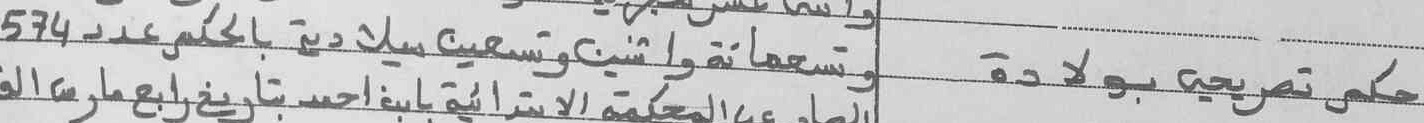 حكم تصريحي بولادة
وتسعمائة واثنين وتسعين ميلادية بالحكم عدد 574
الصادر عن المحكمة الابتدائية بابن احمد بتاريخ رابع مارس